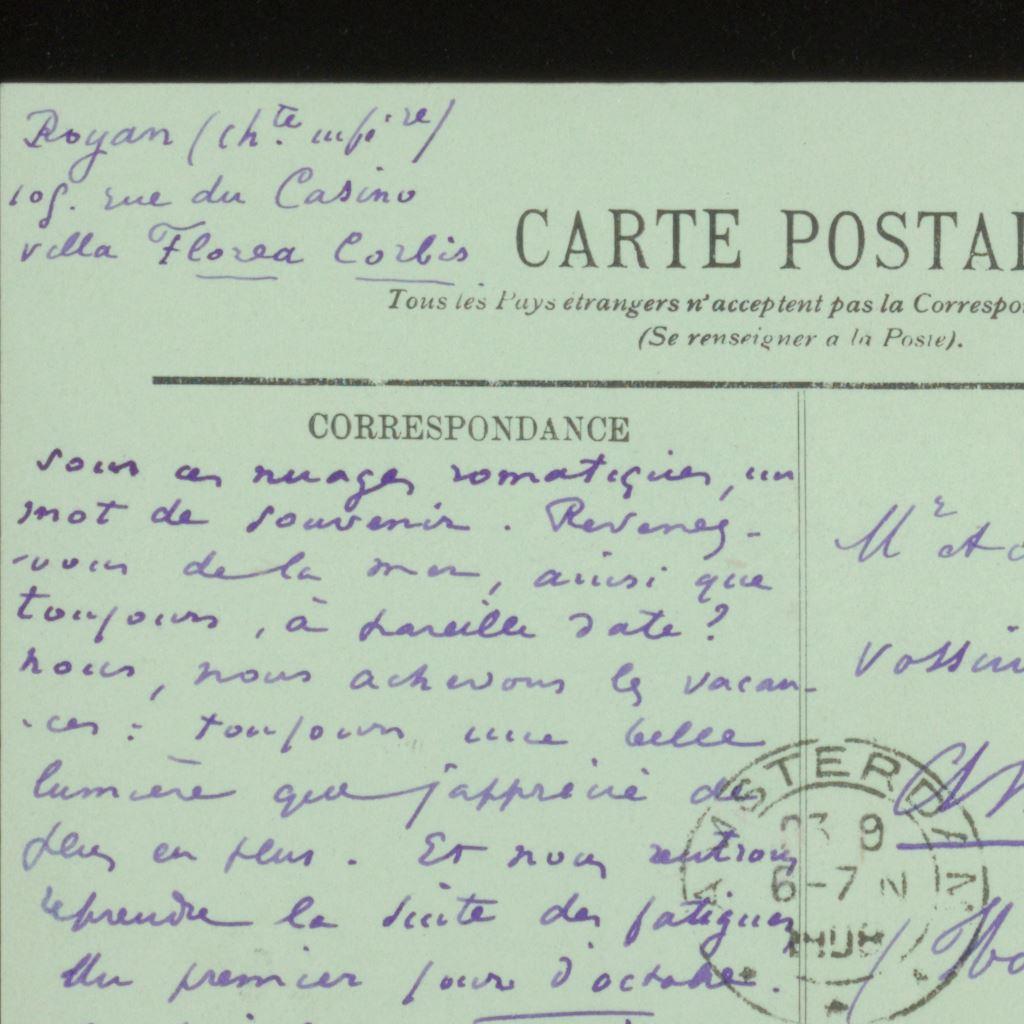 Royan (Ch.te infére)
105. rue du Casino
villa Florea Corbis
CARTE POSTAL
Tous les Pays étrangers n'acceptent pas la Correspo
(Se renseigner a la Poste).
CORRESPONDANCE
sous ces nuages romatiques, un
mot de souvenir. Revenez-
-vous de la mer, ainsi que
toujours, à pareille date?
nous, nous achevons les vacan-
-ces : toujours une belle
lumière que j'apprécie de
plus en plus. Et nous rentrons
reprendre la suite des fatigues
du premier jour d'octobre.
Mr et
Vossiu
AMSTERDAM
23 9
6-7 N